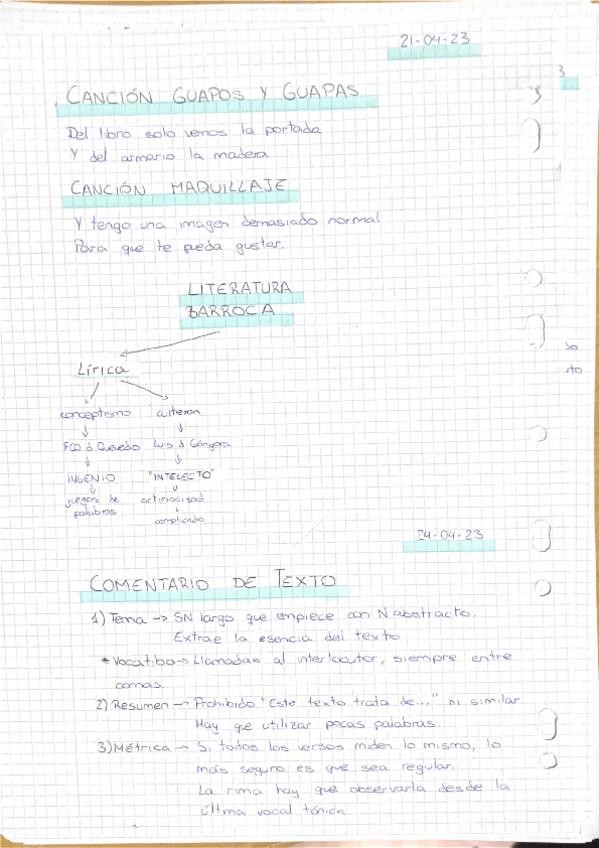 21-04-23
3
CANCIÓN GUAPOS Y GUAPAS
Del libro solo vemos la portada
Y del armario la madera
CANCIÓN MAQUILLAJE
Y tengo una imagen demasiado normal
Para que te pueda gustar.
LITERATURA
BARROCA
Lírica
conceptismo
Fco d Quevedo Luis d Góngora
INGENIO "INTELECTO"
juegos de
palabras
complicado
24-04-23
COMENTARIO DE TEXTO
1) Tema -> SN largo que empiece con N abstracto.
Extrae la esencia del texto
* Vocatibo -> Llamadas al interlocutor, siempre entre
comas.
2) Resumen -> Prohibido "Este texto trata de..." ni similar
Hay que utilizar pocas palabras.
3) Métrica -> Si todos los versos miden lo mismo, lo
más seguro es que sea regular.
La rima hay que observarla desde la
última vocal tónica